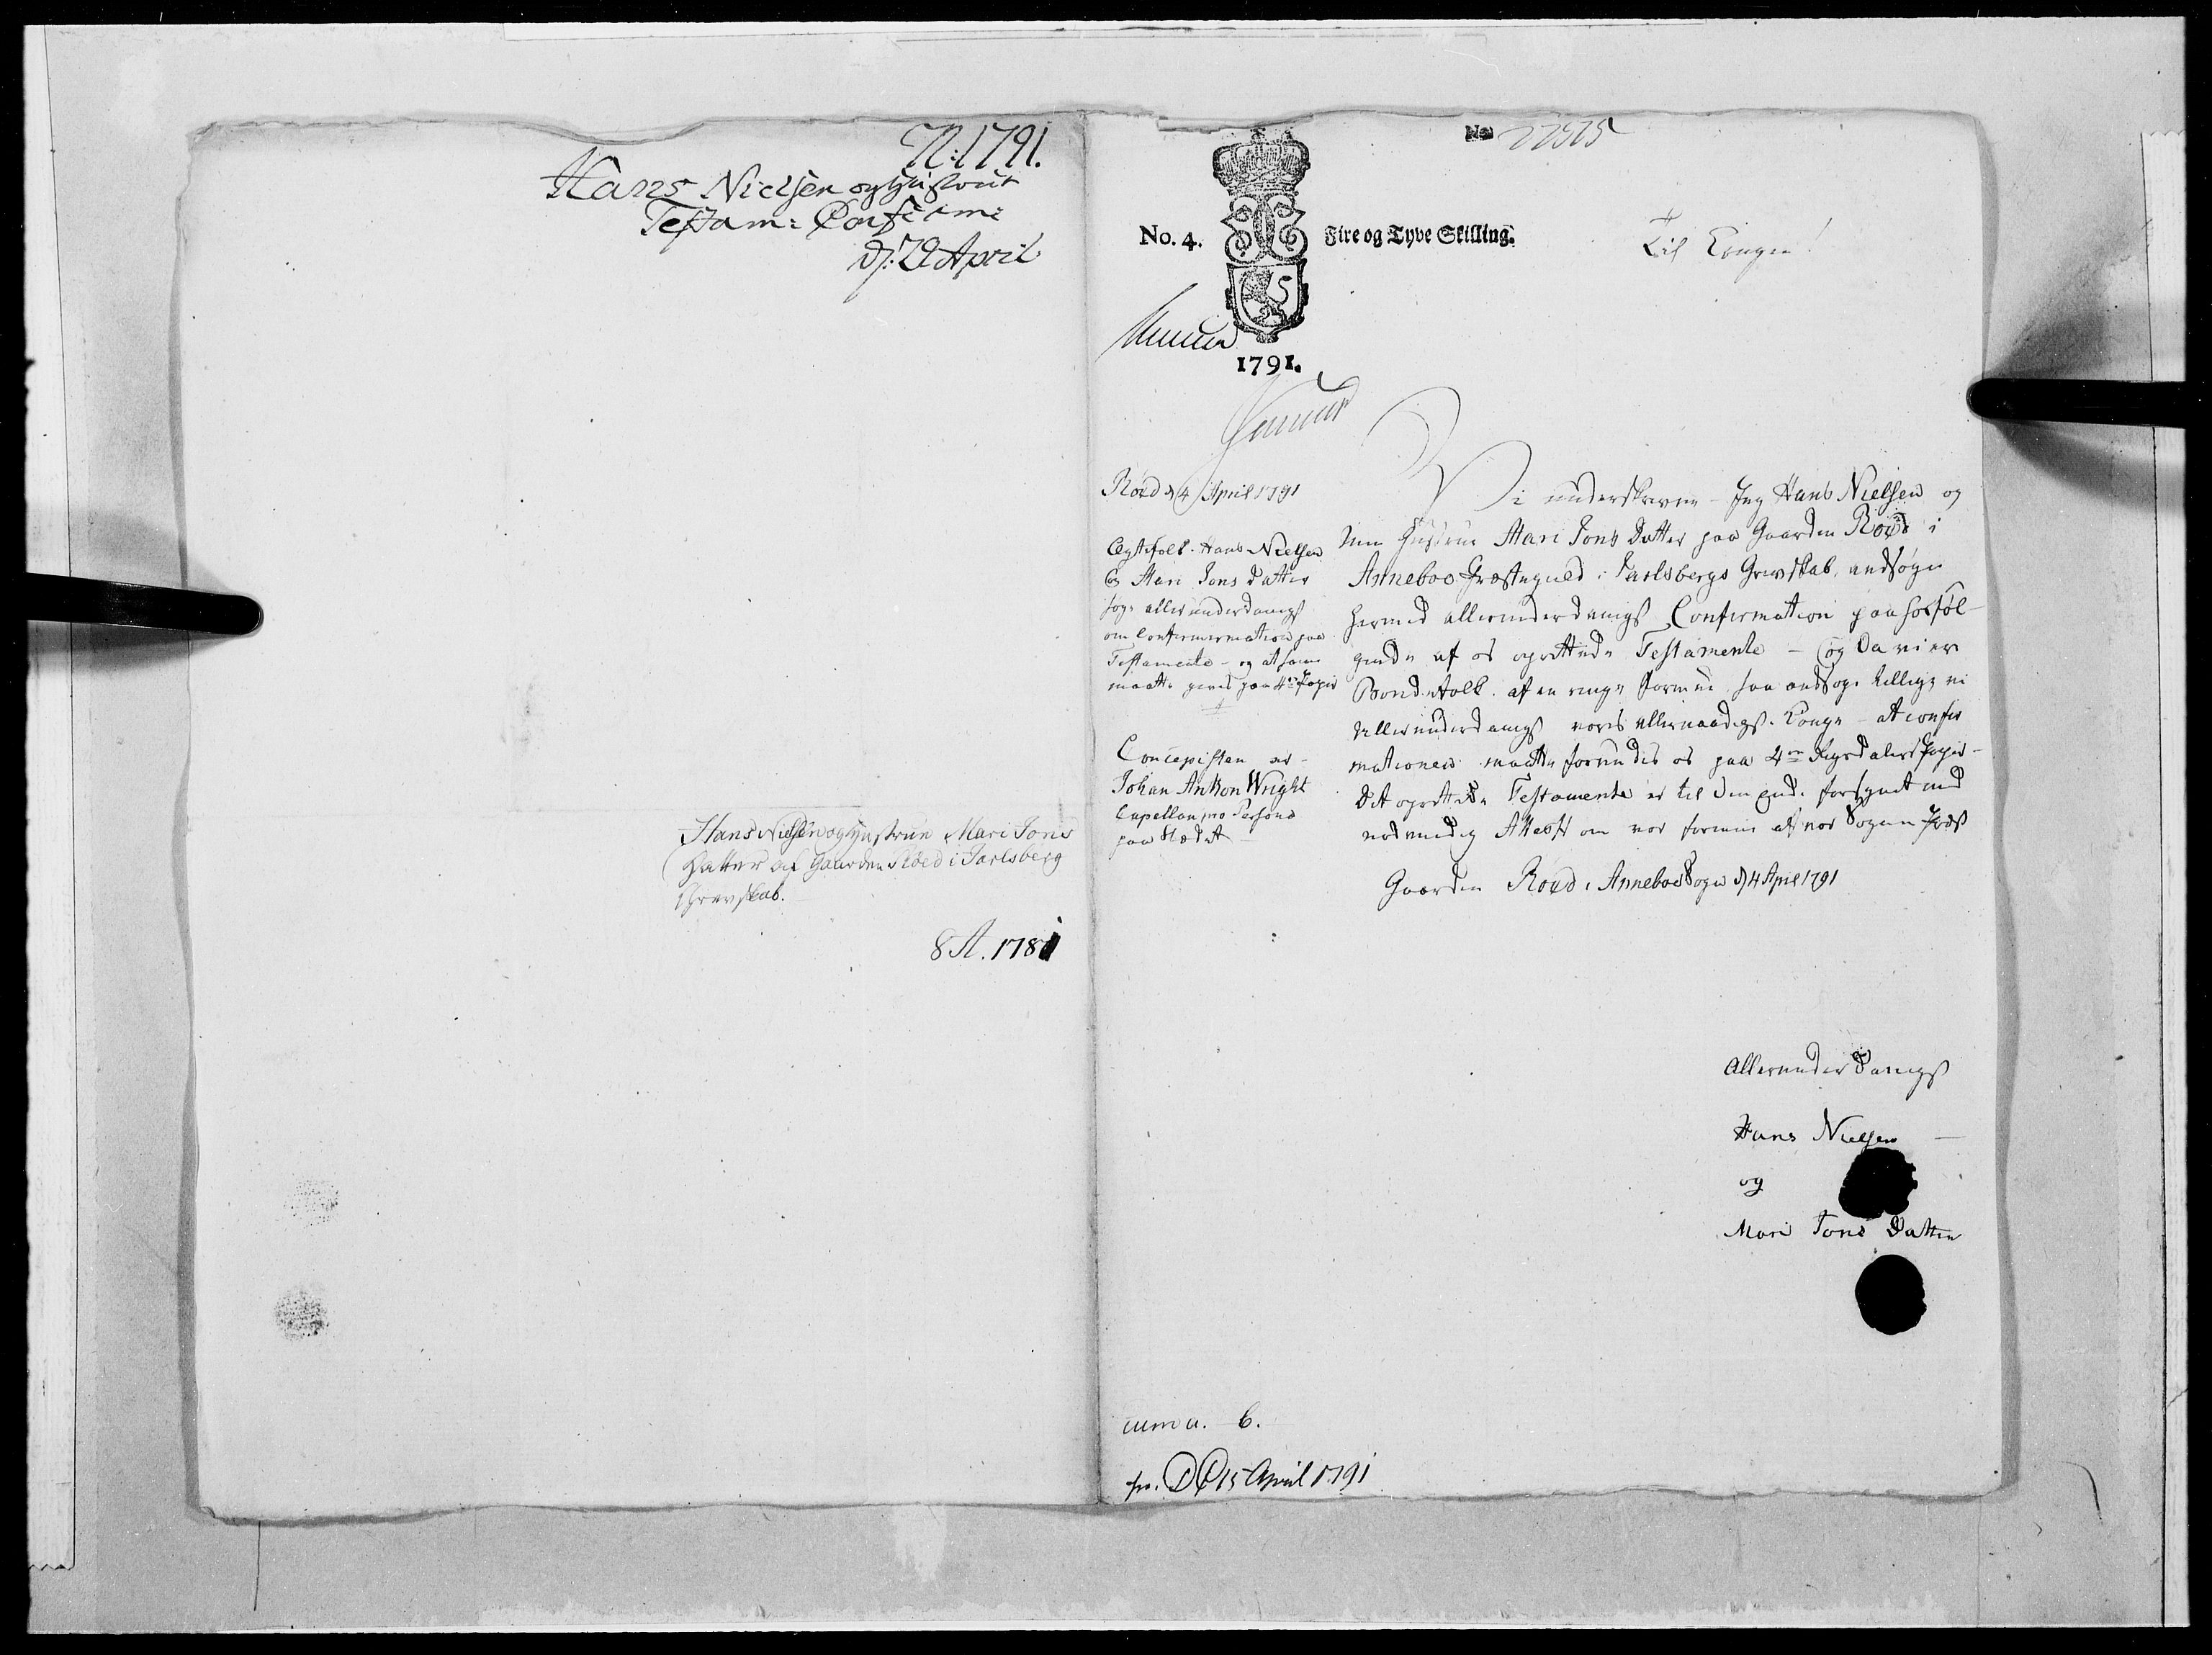 N: 1791.
Hans Nielsen og Hustrues
Testam: Confirm:
d: 29 April
Hans Nielsen og Hustrue Mari Jons
Datter af Gaarden Röed i Jarlsberg
Grevskab.
8 A. 1781
No 22525
No. 4.
Fire og Tyve Skilling.
Til Kongen!
1791.
Röed d 4 April 1791
Egtefolk Hans Nielsen
og Mari Jons Datter
söge allerunderdanigst
om Confirmermation paa
Testamente - og at samme
maatte gives paa 4de Papir
Concepisten er -
Johan Anthon Wright
Capellan pro Persona
paa Stædet
Vi underskrevne - Jeg Hans Nielsen og
min Hustrue Mari Jons Datter paa Gaarden Röed i
Anneboe Præstegield i Jarlsbergs Grevskab, andsöge
hermed allerunderdanigst Confirmation paa hosföl-
gende af os oprettede Testamente - og Da vi er
Bondefolk af en ringe formue, saa andsöge tillige vi
Allerunderdanigst vores allernaadigste Konge - at confir
mationen maatte forundes os paa 4re Rigsdalers Papir -
Det oprettede Testamente er til den Ende forsynet med
nödvendig Attest om vor formue af vor Sogne Præst
Gaarden Röed i Anneboe Sogn d 4 April 1791
Allerunderdanigst
Hans Nielsen
og
Mari Jons Datter
cum a. 6.
pr. DC 15 April 1791